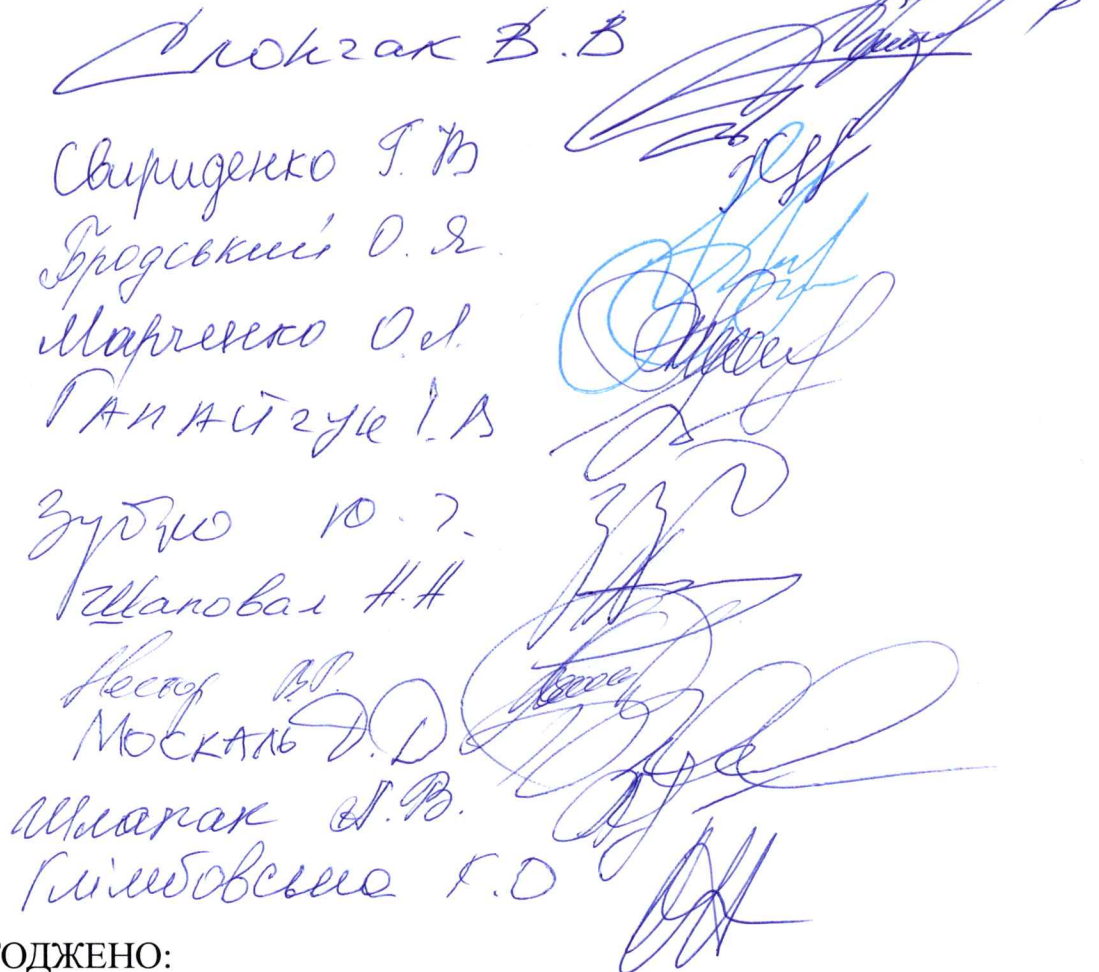 Слончак В.В
Свириденко Г.В
Бродський О.Я.
Марченко О.Л.
Гапайчук І.В
Зубко Ю.
Шаповал Н.Н
Нестор В.Г.
Москаль Д.Д
Шлапак А.В.
Глімбовська Г.О
ОДЖЕНО: